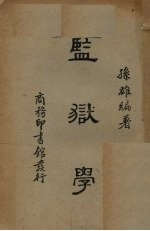 孫雄編著
監獄學
商務印書館發行